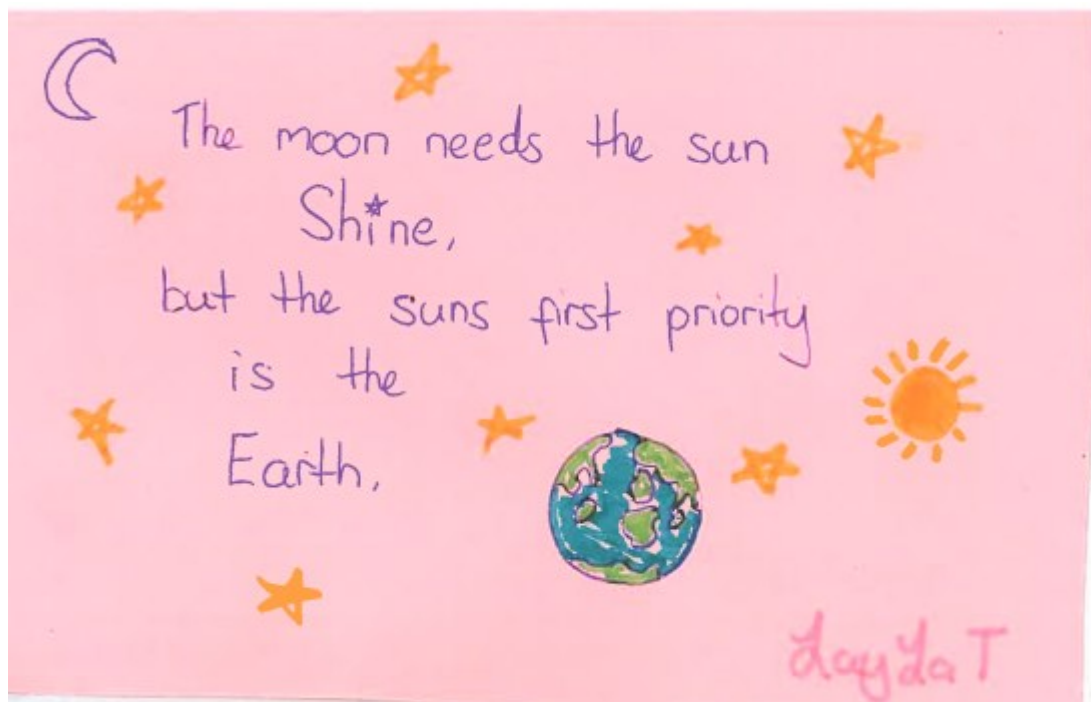 The moon needs the sun
Shine,
but the suns first priority
is the
Earth.
Layla T